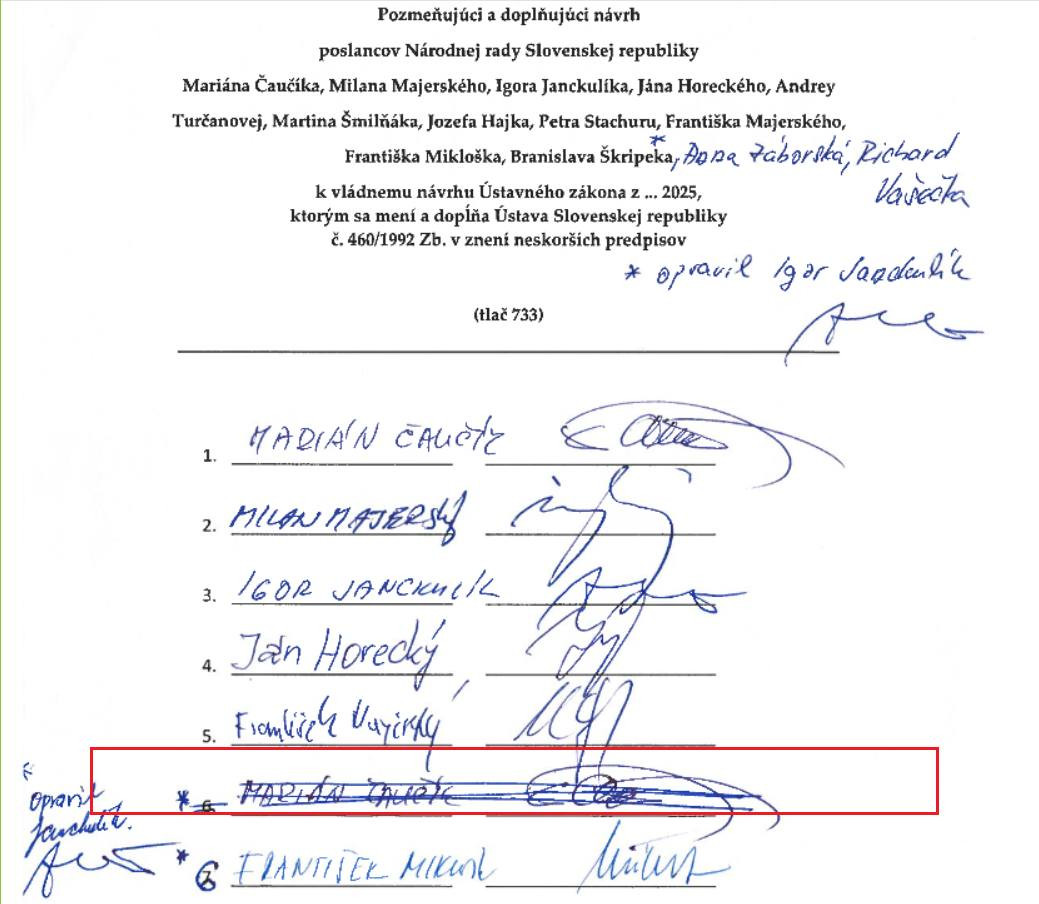 Pozmeňujúci a doplňujúci návrh
poslancov Národnej rady Slovenskej republiky
Mariána Čaučíka, Milana Majerského, Igora Janckulíka, Jána Horeckého, Andrey
Turčanovej, Martina Šmilňáka, Jozefa Hajka, Petra Stachuru, Františka Majerského,
*
Františka Mikloška, Branislava Škripeka, Anna Záborská, Richard
Vašečka
k vládnemu návrhu Ústavného zákona z ... 2025,
ktorým sa mení a dopĺňa Ústava Slovenskej republiky
č. 460/1992 Zb. v znení neskorších predpisov
* opravil Igor Janckulík
(tlač 733)
1. MARIÁN ČAUČÍK
2. MILAN MAJERSKÝ
3. IGOR JANCKULÍK
4. Ján Horecký
5. František Majerský
* 6. MARIÁN ČAUČÍK
* opravil
Janckulík.
* 6 FRANTIŠEK MIKLOŠ